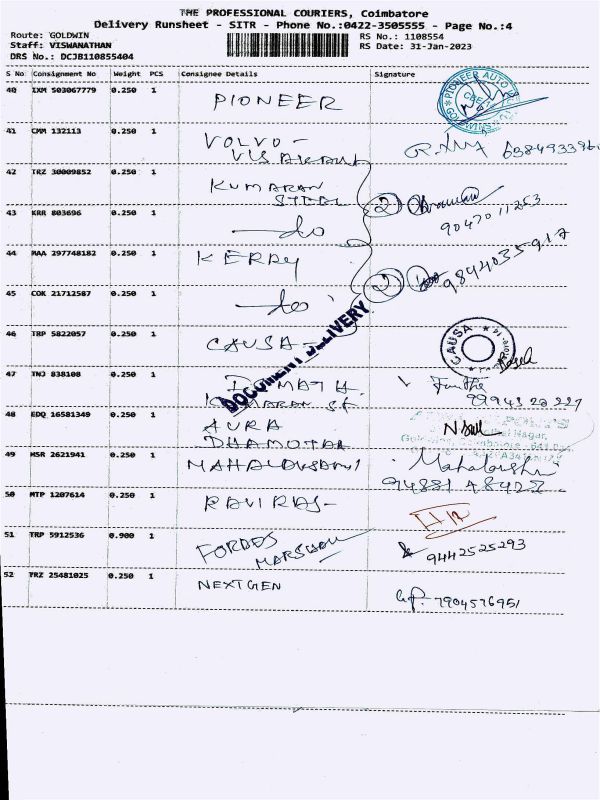 THE PROFESSIONAL COURIERS, Coimbatore
Delivery Runsheet - SITR - Phone No.:0422-3505555 - Page No.:4
Route: GOLDWIN RS No.: 1108554
Staff: VISWANATHAN RS Date: 31-Jan-2023
DRS No.: DCJB110855404
S No Consignment No Weight PCS Consignee Details Signature
40 IXM 503067779 0.250 1 PIONEER
PIONEER AUTO
41 CMM 132113 0.250 1 VOLVO -
42 TRZ 30009852 0.250 1 KUMARAN
STEEL
2
9047011253
43 KRR 803696 0.250 1 do
44 MAA 297748182 0.250 1 KERRY
2
9844035917
45 COK 21712587 0.250 1 do
DOCUMENT DELIVERY
46 TRP 5822057 0.250 1 CAUSA -
CAUSA
47 TNJ 838108 0.250 1
48 EDQ 16581349 0.250 1 AURA
49 MSR 2621941 0.250 1 MAHALAKSHMI
50 MTP 1207614 0.250 1 RAVIRAJ -
51 TRP 5912536 0.900 1 FORBES
MARSHALL
9442525293
52 TRZ 25481025 0.250 1 NEXTGEN
7904576951